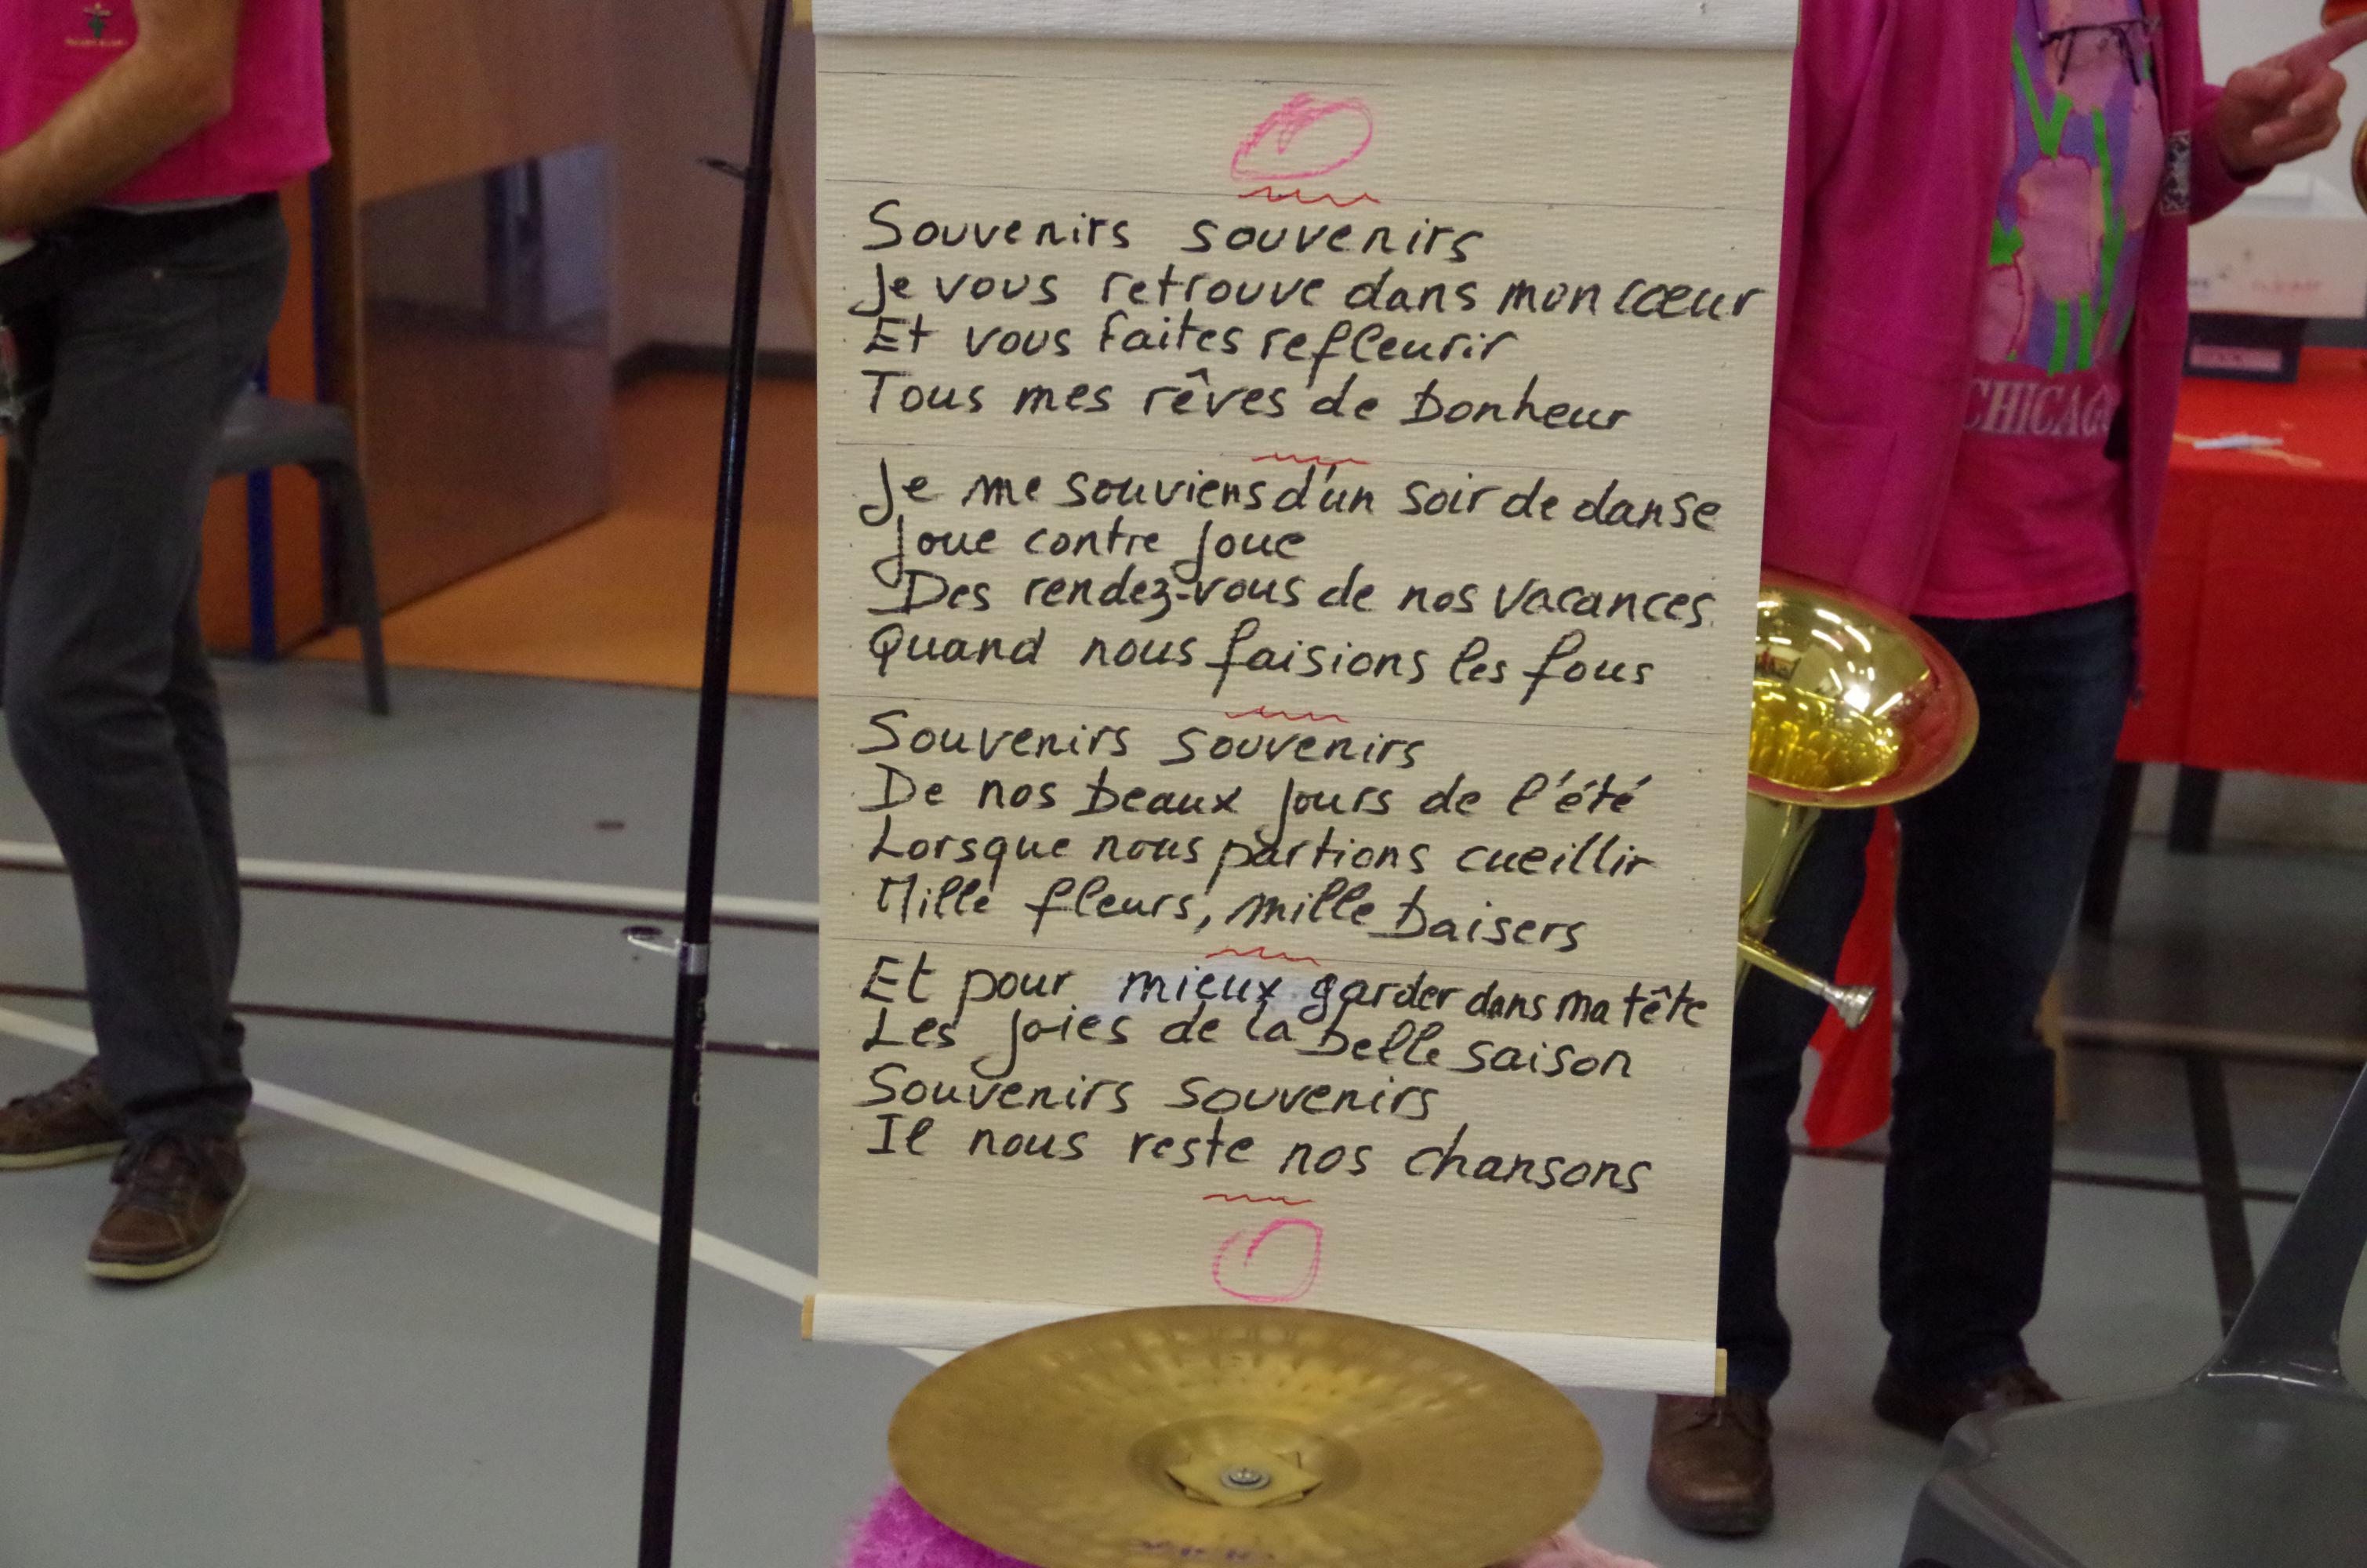 Souvenirs souvenirs
Je vous retrouve dans mon cœur
Et vous faites refleurir
Tous mes rêves de bonheur
Je me souviens d'un soir de danse
Joue contre joue
Des rendez-vous de nos vacances
Quand nous faisions les fous
Souvenirs souvenirs
De nos beaux jours de l'été
Lorsque nous partions cueillir
Mille fleurs, mille baisers
Et pour mieux garder dans ma tête
Les joies de la belle saison
Souvenirs souvenirs
Il nous reste nos chansons
CHICAGO